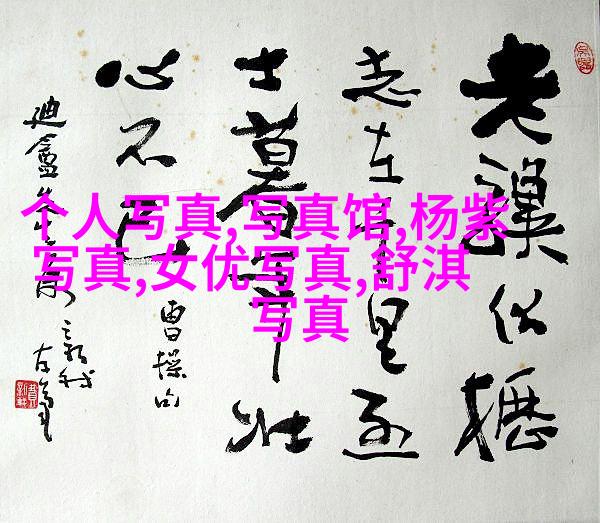 老驥伏櫪
志在千里烈
士暮年壮
心不已
曹操句
迪盦
个人写真,写真馆,杨紫
写真,女优写真,舒淇
写真